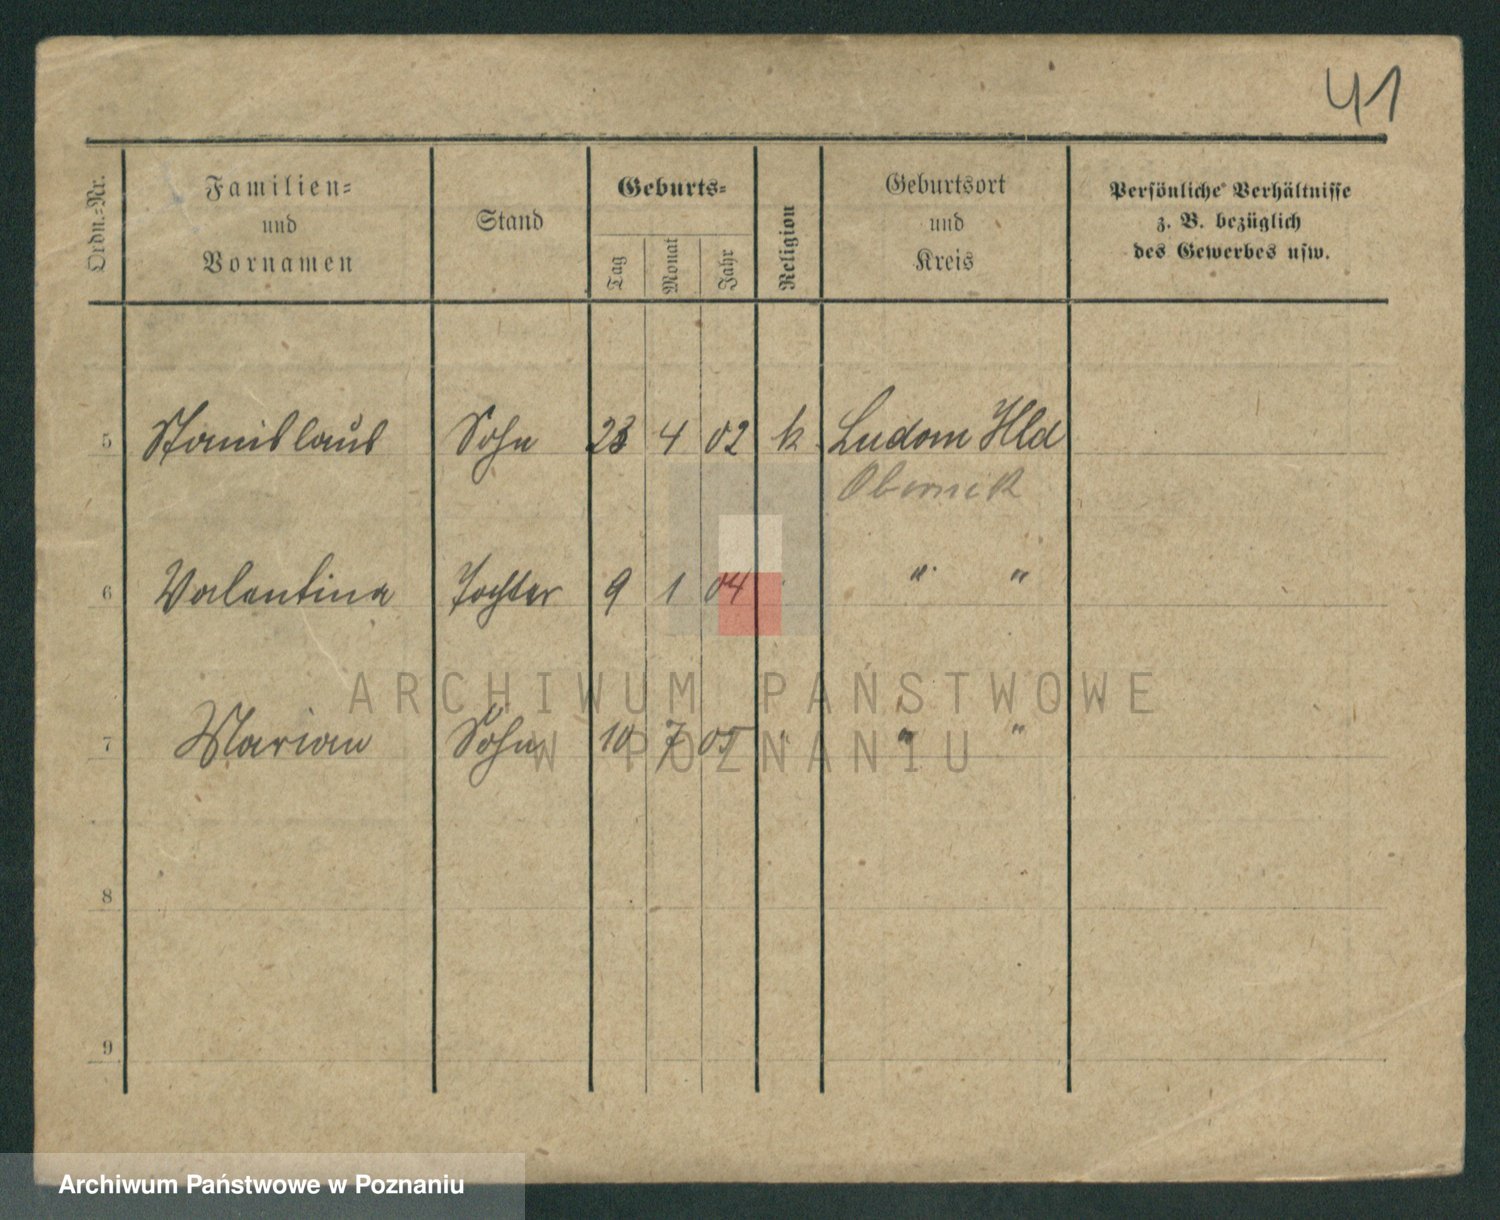 41
Ordn.=Nr.
Familien=
und
Vornamen
Stand
Geburts=
Tag
Monat
Jahr
Religion
Geburtsort
und
Kreis
Persönliche Verhältnisse
z. B. bezüglich
des Gewerbes usw.
5 Stanislaus Sohn 23 4 02 k Ludom Hld
Obornik
6 Valentina Tochter 9 1 04 " " "
7 Marian Sohn 10 7 05 " " "
8
9
ARCHIWUM PAŃSTWOWE
W POZNANIU
Archiwum Państwowe w Poznaniu